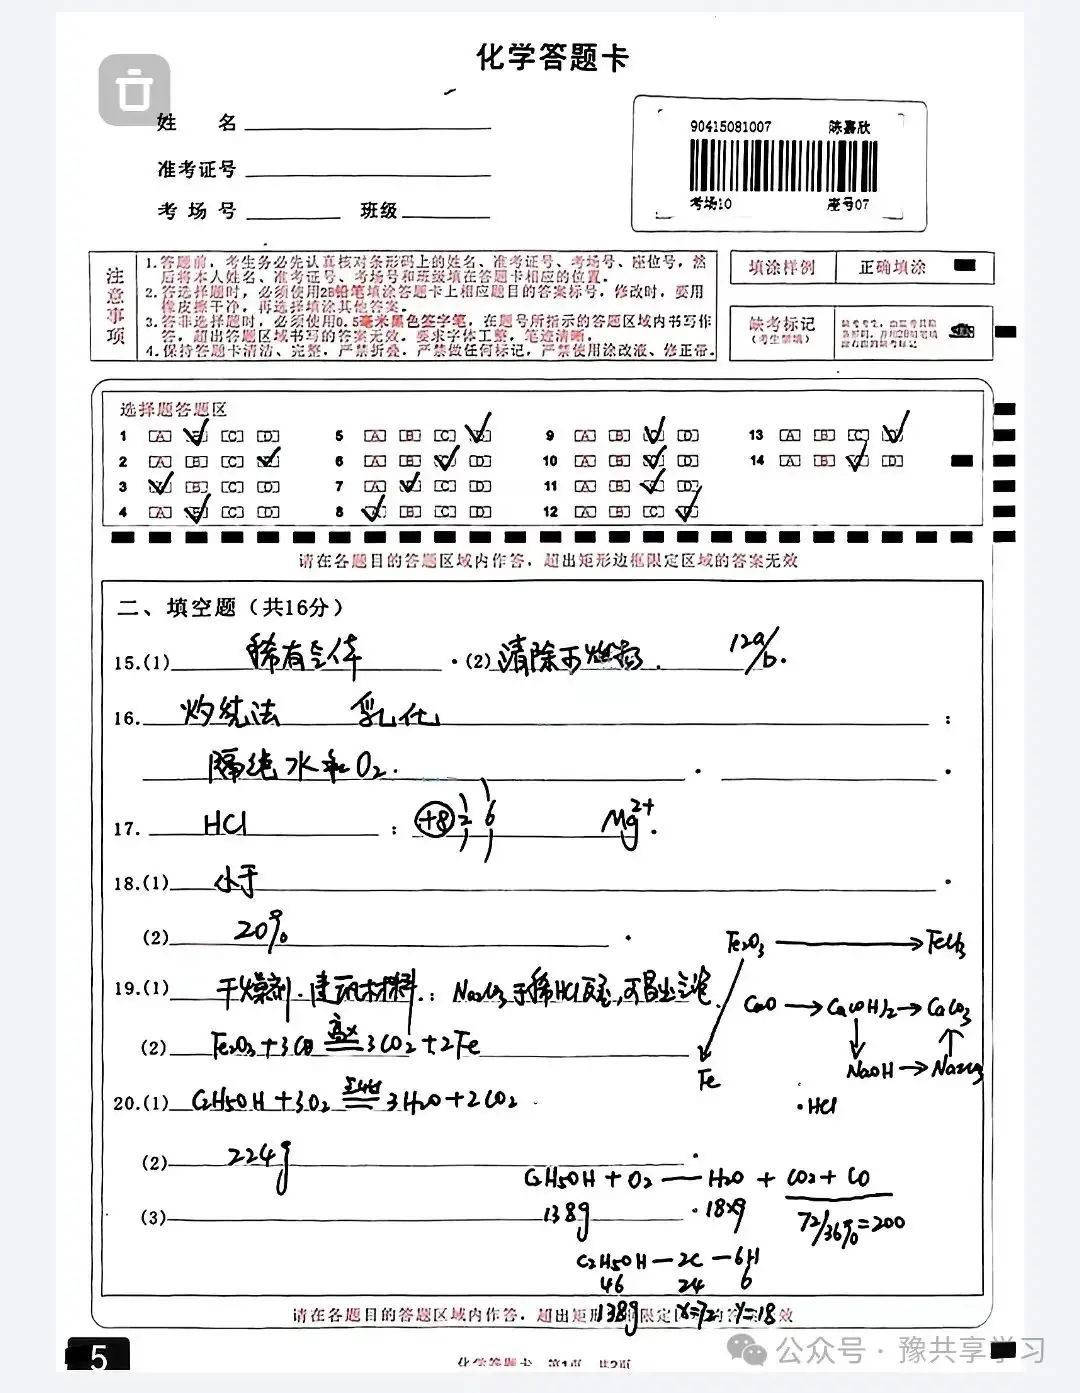 化学答题卡
姓 名
准考证号
考场号 班级
90415081007 陈嘉欣
考场10 座号07
注意事项
1.答题前,考生务必先认真核对条形码上的姓名、准考证号、考场号、座位号,然
后将本人姓名、准考证号、考场号和班级填在答题卡相应的位置。
2.答选择题时,必须使用2B铅笔填涂答题卡上相应题目的答案标号,修改时,要用
橡皮擦干净,再选择填涂其他答案。
3.答非选择题时,必须使用0.5毫米黑色签字笔,在题号所指示的答题区域内书写作
答,超出答题区域书写的答案无效。要求字体工整,笔迹清晰。
4.保持答题卡清洁、完整,严禁折叠,严禁做任何标记,严禁使用涂改液、修正带。
填涂样例 正确填涂
缺考标记
(考生禁填)
选择题答题区
1 [A] [C] [D] 5 [A] [B] [C] 9 [A] [B] [D] 13 [A] [B] [C]
2 [A] [B] [C] 6 [A] [B] [D] 10 [A] [B] [D] 14 [A] [B] [D]
3 [B] [C] [D] 7 [A] [C] [D] 11 [A] [B] [D]
4 [A] [C] [D] 8 [B] [C] [D] 12 [A] [B] [C]
请在各题目的答题区域内作答,超出矩形边框限定区域的答案无效
二、填空题(共16分)
15.(1) 稀有气体 .(2) 清除可燃物. 12a/b.
16. 灼烧法 乳化 ;
隔绝水和O₂. . .
17. HCl ; +8 2 6 Mg²⁺.
18.(1) 小于 .
(2) 20% .
Fe₂O₃ → FeCl₃
19.(1) 干燥剂.建筑材料.; Na₂CO₃与稀HCl反应,可冒出气泡.
CaO → Ca(OH)₂ → CaCO₃
(2) Fe₂O₃+3CO 高温 3CO₂+2Fe
NaOH → Na₂CO₃
Fe
20.(1) C₂H₅OH+3O₂ 点燃 3H₂O+2CO₂ .
·HCl
(2) 224g .
C₂H₅OH+O₂ — H₂O + CO₂+CO
(3) 138g . 18×9 72/36%=200
C₂H₅OH—2C—6H
46 24 6
138g x=72 y=18
请在各题目的答题区域内作答,超出矩形边框限定区域的答案无效
5
化学答题卡 第1页 共2页
公众号·豫共享学习